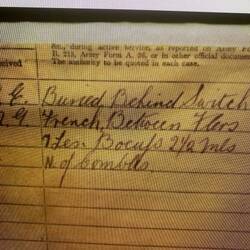 &c., during active service, as reported on Army
B. 213, Army Form A. 36, or in other official docume
The authority to be quoted in each case.
eived
G. Buried Behind Switch
R. G. Trench, Between Flers
& Les Boeufs 2½ mls
N. of Combles